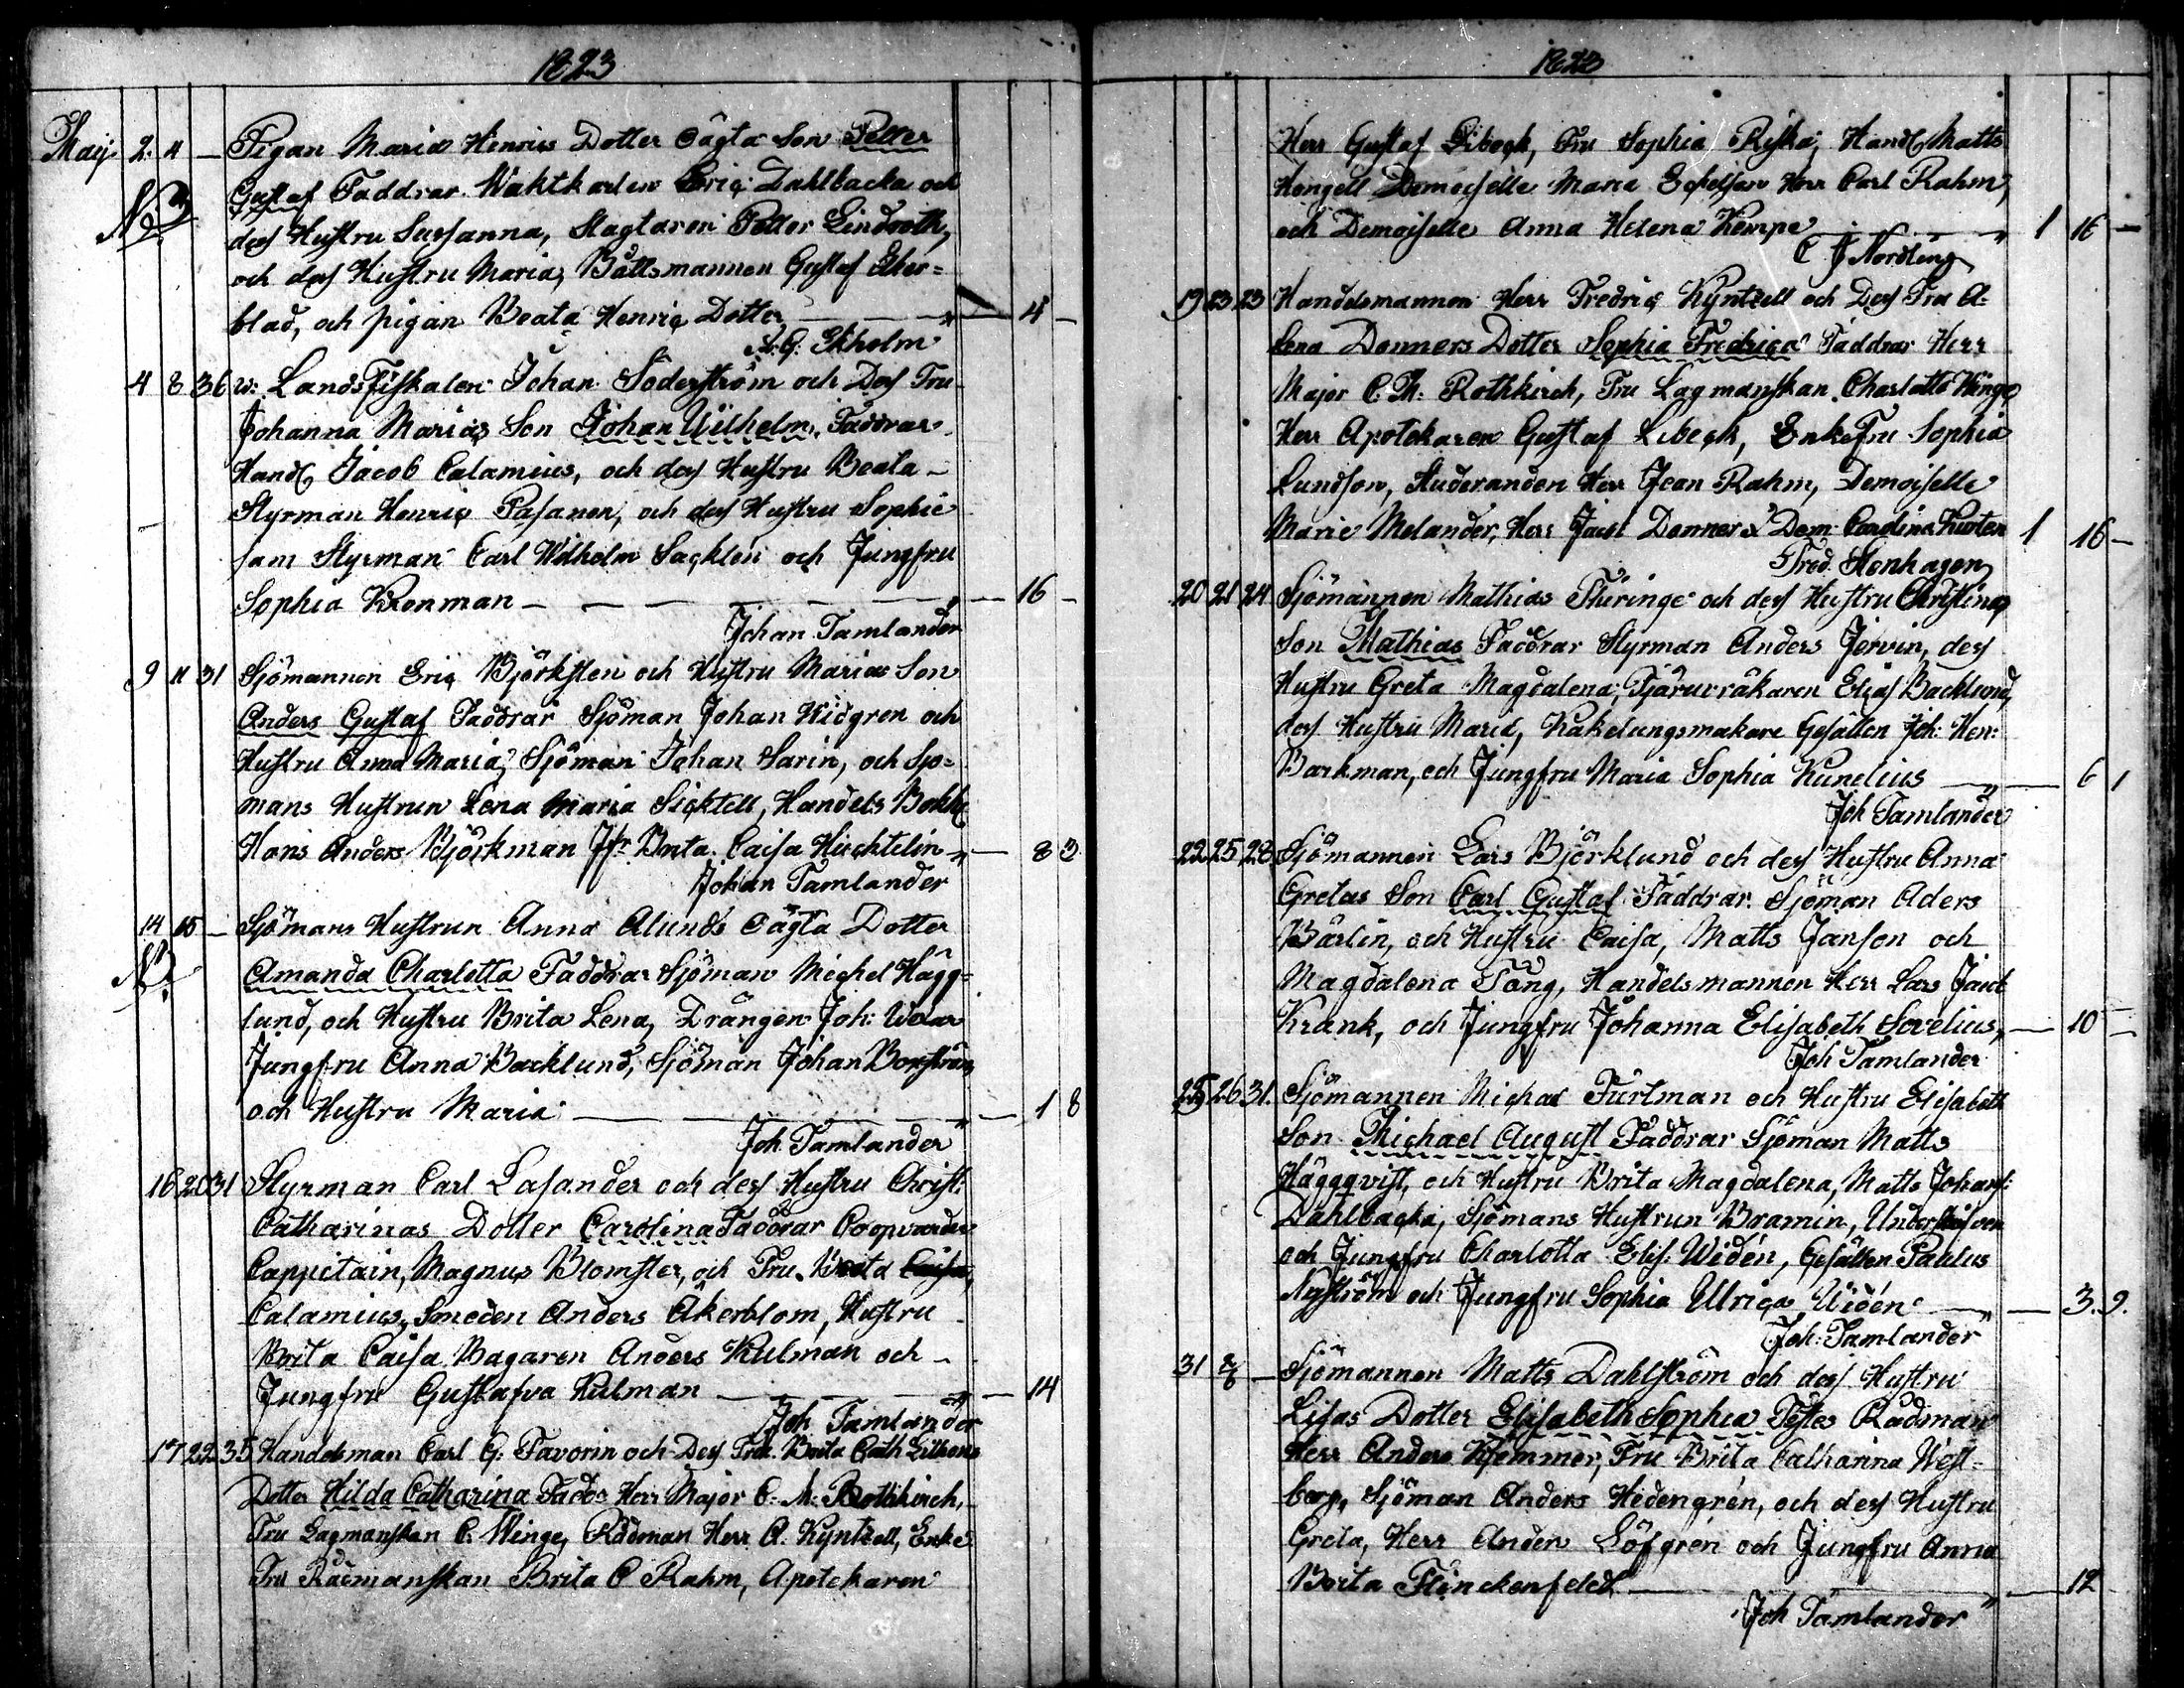 1823
Maij 2. 4 — Pigan Maria Henrics Dotter oägta Son Petter
Gustaf Faddrar Waktkarlen Eric Dahlbacka och
No
des Hustru Susanna, Slagtaren Petter Lindroth,
och des Hustru Maria, Båttsmannen Gustaf Eker=
blad, och pigan Beata Henric Dotter — " — 4 —
A. G. Ekholm
4 8 36 v: Landsfiskalen Johan Söderström och Des Fru
Johanna Marias Son Johan Wilhelm, Faddrar
Handl Jacob Calamius, och des Hustru Beata —
Styrman Henric Pasanen, och des Hustru Sophie
sam Styrman Carl Wilhelm Sacklen och Jungfru
Sophia Kronman — — — — " — 16 —
Johan Tamlander
9 11 31 Sjömannen Eric Björksten och Hustru Marias Son
Anders Gustaf Faddrar Sjöman Johan Widgren och
Hustru Anna Maria, Sjöman Johan Sarin, och Sjö=
mans Hustrun Lena Maria Sicktell, Handels Bokh
Hans Anders Björkman Jfr Brita Caisa " — 8 3
Johan Tamlander
14 15 — Sjömans Hustrun Anna Alunds oägta Dotter
Amanda Charlotta Faddrar Sjöman Michel Hägg=
lund, och Hustru Brita Lena, Drängen Joh:
Jungfru Anna Backlund, Sjöman Johan Boxström
och Hustru Maria — " — 1 8
Joh Tamlander
16 20 31 Styrman Carl Lasander och des Hustru Christ:
Catharinas Dotter Carolina Faddrar Coopvardie
Cappitain, Magnus Blomster, och Fru Brita
Calamius, Smeden Anders Åkerblom, Hustru
Brita Caisa Bagaren Anders Kulman och —
Jungfru Gustafva Kulman — " — 14
Joh Tamlander
17 22 35 Handelsman Carl G: Favorin och Des Fru Brita Cath
Dotter Hilda Catharina Fadd: Herr Major C. M: Rothkirch,
Fru Lagmanskan C. Winge, Rådman Herr A. Kyntzell, Enke
Fru Rådmanskan Brita C Rahm, Apotekaren
1823
Herr Gustaf Libeck, Fru Sophia Riska, Handl Matts
Kongell Demoiselle Maria Herr Carl Rahm,
och Demoiselle Anna Helena Kempe " 1 16 —
C J Nordling
19 23 23 Handelsmannen Herr Fredric Kyntzell och Des Fru A=
lena Donners Dotter Sophia Fredrica Faddrar Herr
Major C. M: Rothkirch, Fru Lagmanskan Charlotta Winge,
Herr Apotekaren Gustaf Libeck, EnkeFru Sophia
Lundson, Studeranden Herr Jean Rahm, Demoiselle
Marie Melander, Herr Jacob Donner & Dem Carolina Kurten 1 16 —
Fred. Stenhagen
20 21 24 Sjömannen Mathias Thuringe och des Hustru Christinas
Son Mathias Faddrar Styrman Anders Jervin, des
Hustru Greta Magdalena, Tjäruvräkaren Elias Backlund,
des Hustru Maria, Kakelungsmakare Gesällen Joh: Hen:
Barkman, och Jungfru Maria Sophia Kunelius — " — 6 1
Joh Tamlander
22 25 28 Sjömannen Lars Björklund och des Hustru Anna
Gretas Son Carl Gustaf Faddrar Sjöman Aders
Bärlin, och Hustru Caisa, Matts Janson och
Magdalena Tång, Handelsmannen Herr Lars Jacob
Krank, och Jungfru Johanna Elisabeth Sovelius, — 10 —
Joh Tamlander
25 26 31. Sjömannen Michael Furtman och Hustru Elisabeth
Son Michael August Faddrar Sjöman Matts
Häggqvist, och Hustru Brita Magdalena, Matts Johans:
Dahlbacka, Sjömans Hustrun Bramin,
och Jungfru Charlotta Elis: Widén, Gesällen Paulus
Nyström och Jungfru Sophia Ulrica Widén — " — 3. 9.
Joh: Tamlander
31 2/6 — Sjömannen Matts Dahlström och des Hustru
Lisas Dotter Elisabeth Sophia Testes Rådman
Herr Anders Kjemmer, Fru Brita Catharina West=
berg, Sjöman Anders Hedengrén, och des Hustru
Greta, Herr Anders Löfgren och Jungfru Anna
Brita Flinckenfeldt — 12
Joh Tamlander